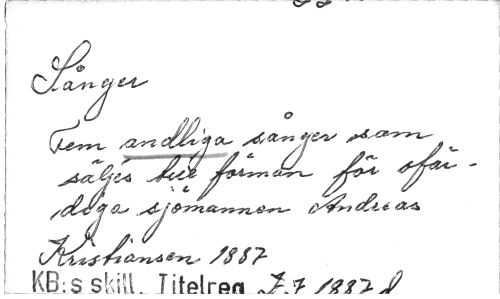 Sånger
Fem andliga sånger som
säljes till förmån för ofär-
diga sjömannen Andreas
Kristiansen 1887
KB:s skill. Titelreg E 7 1887 d